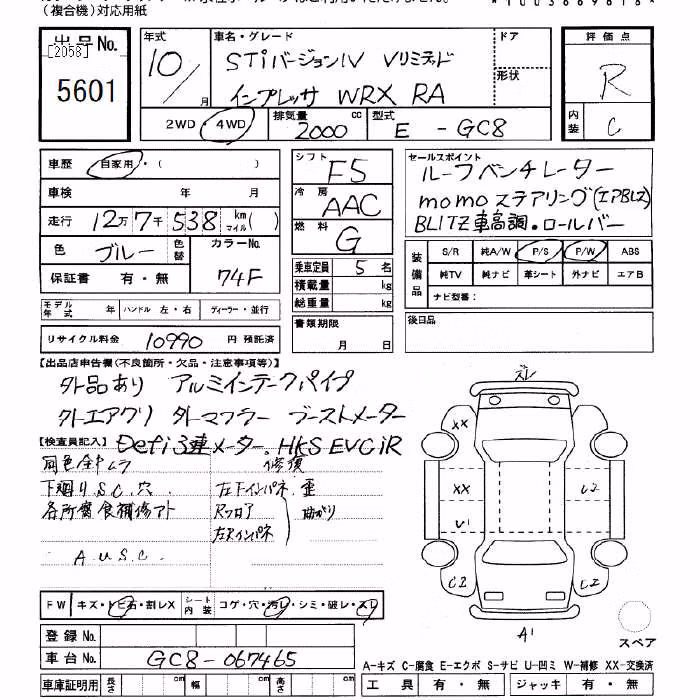 （複合機）対応用紙
*1003669616*
出品No.
[2058]
5601
年式
10／月
車名・グレード
STiバージョンIV Vリミテッド
インプレッサ WRX RA
ドア
形状
評価点
R
内装
C
2WD・4WD
排気量
2000 cc
型式
E - GC8
車歴 自家用・（ ）
車検 年 月
走行 12万7千538 km マイル( )
色 ブルー 色替
カラーNo. 74F
保証書 有・無
モデル年式 年 ハンドル 左・右 ディーラー・並行
リサイクル料金 10990 円 預託済
シフト F5
冷房 AAC
燃料 G
乗車定員 5 名
積載量 kg
総重量 kg
書類期限
月 日
セールスポイント
ルーフベンチレーター
momoステアリング(エアBレス)
BLITZ車高調・ロールバー
装備品
S/R 純A/W P/S P/W ABS
純TV 純ナビ 革シート 外ナビ エアB
ナビ型番：
後日品
【出品店申告欄(不良箇所・欠品・注意事項等)】
外品あり アルミインテークパイプ
外エアクリ 外マフラー ブーストメーター
Defi3連メーター、HKS EVCiR
【検査員記入】
同色全ムラ
下廻りS.C.穴.
各所腐食補修アト
A U S C.
修復
左下インパネ 歪
Rフロア
左Rインパネ
曲がり
ズレ
XX
XX
U1
C2
C2
C2
A1
スペア
FW キズ・トビ石・割レX シート内装 コゲ・穴・汚レ・シミ・破レ・スレ
登録No.
車台No. GC8-067465
車庫証明用 長さ cm 幅 cm 高さ cm
A-キズ C-腐食 E-エクボ S-サビ U-凹ミ W-補修 XX-交換済
工具 有・無 ジャッキ 有・無